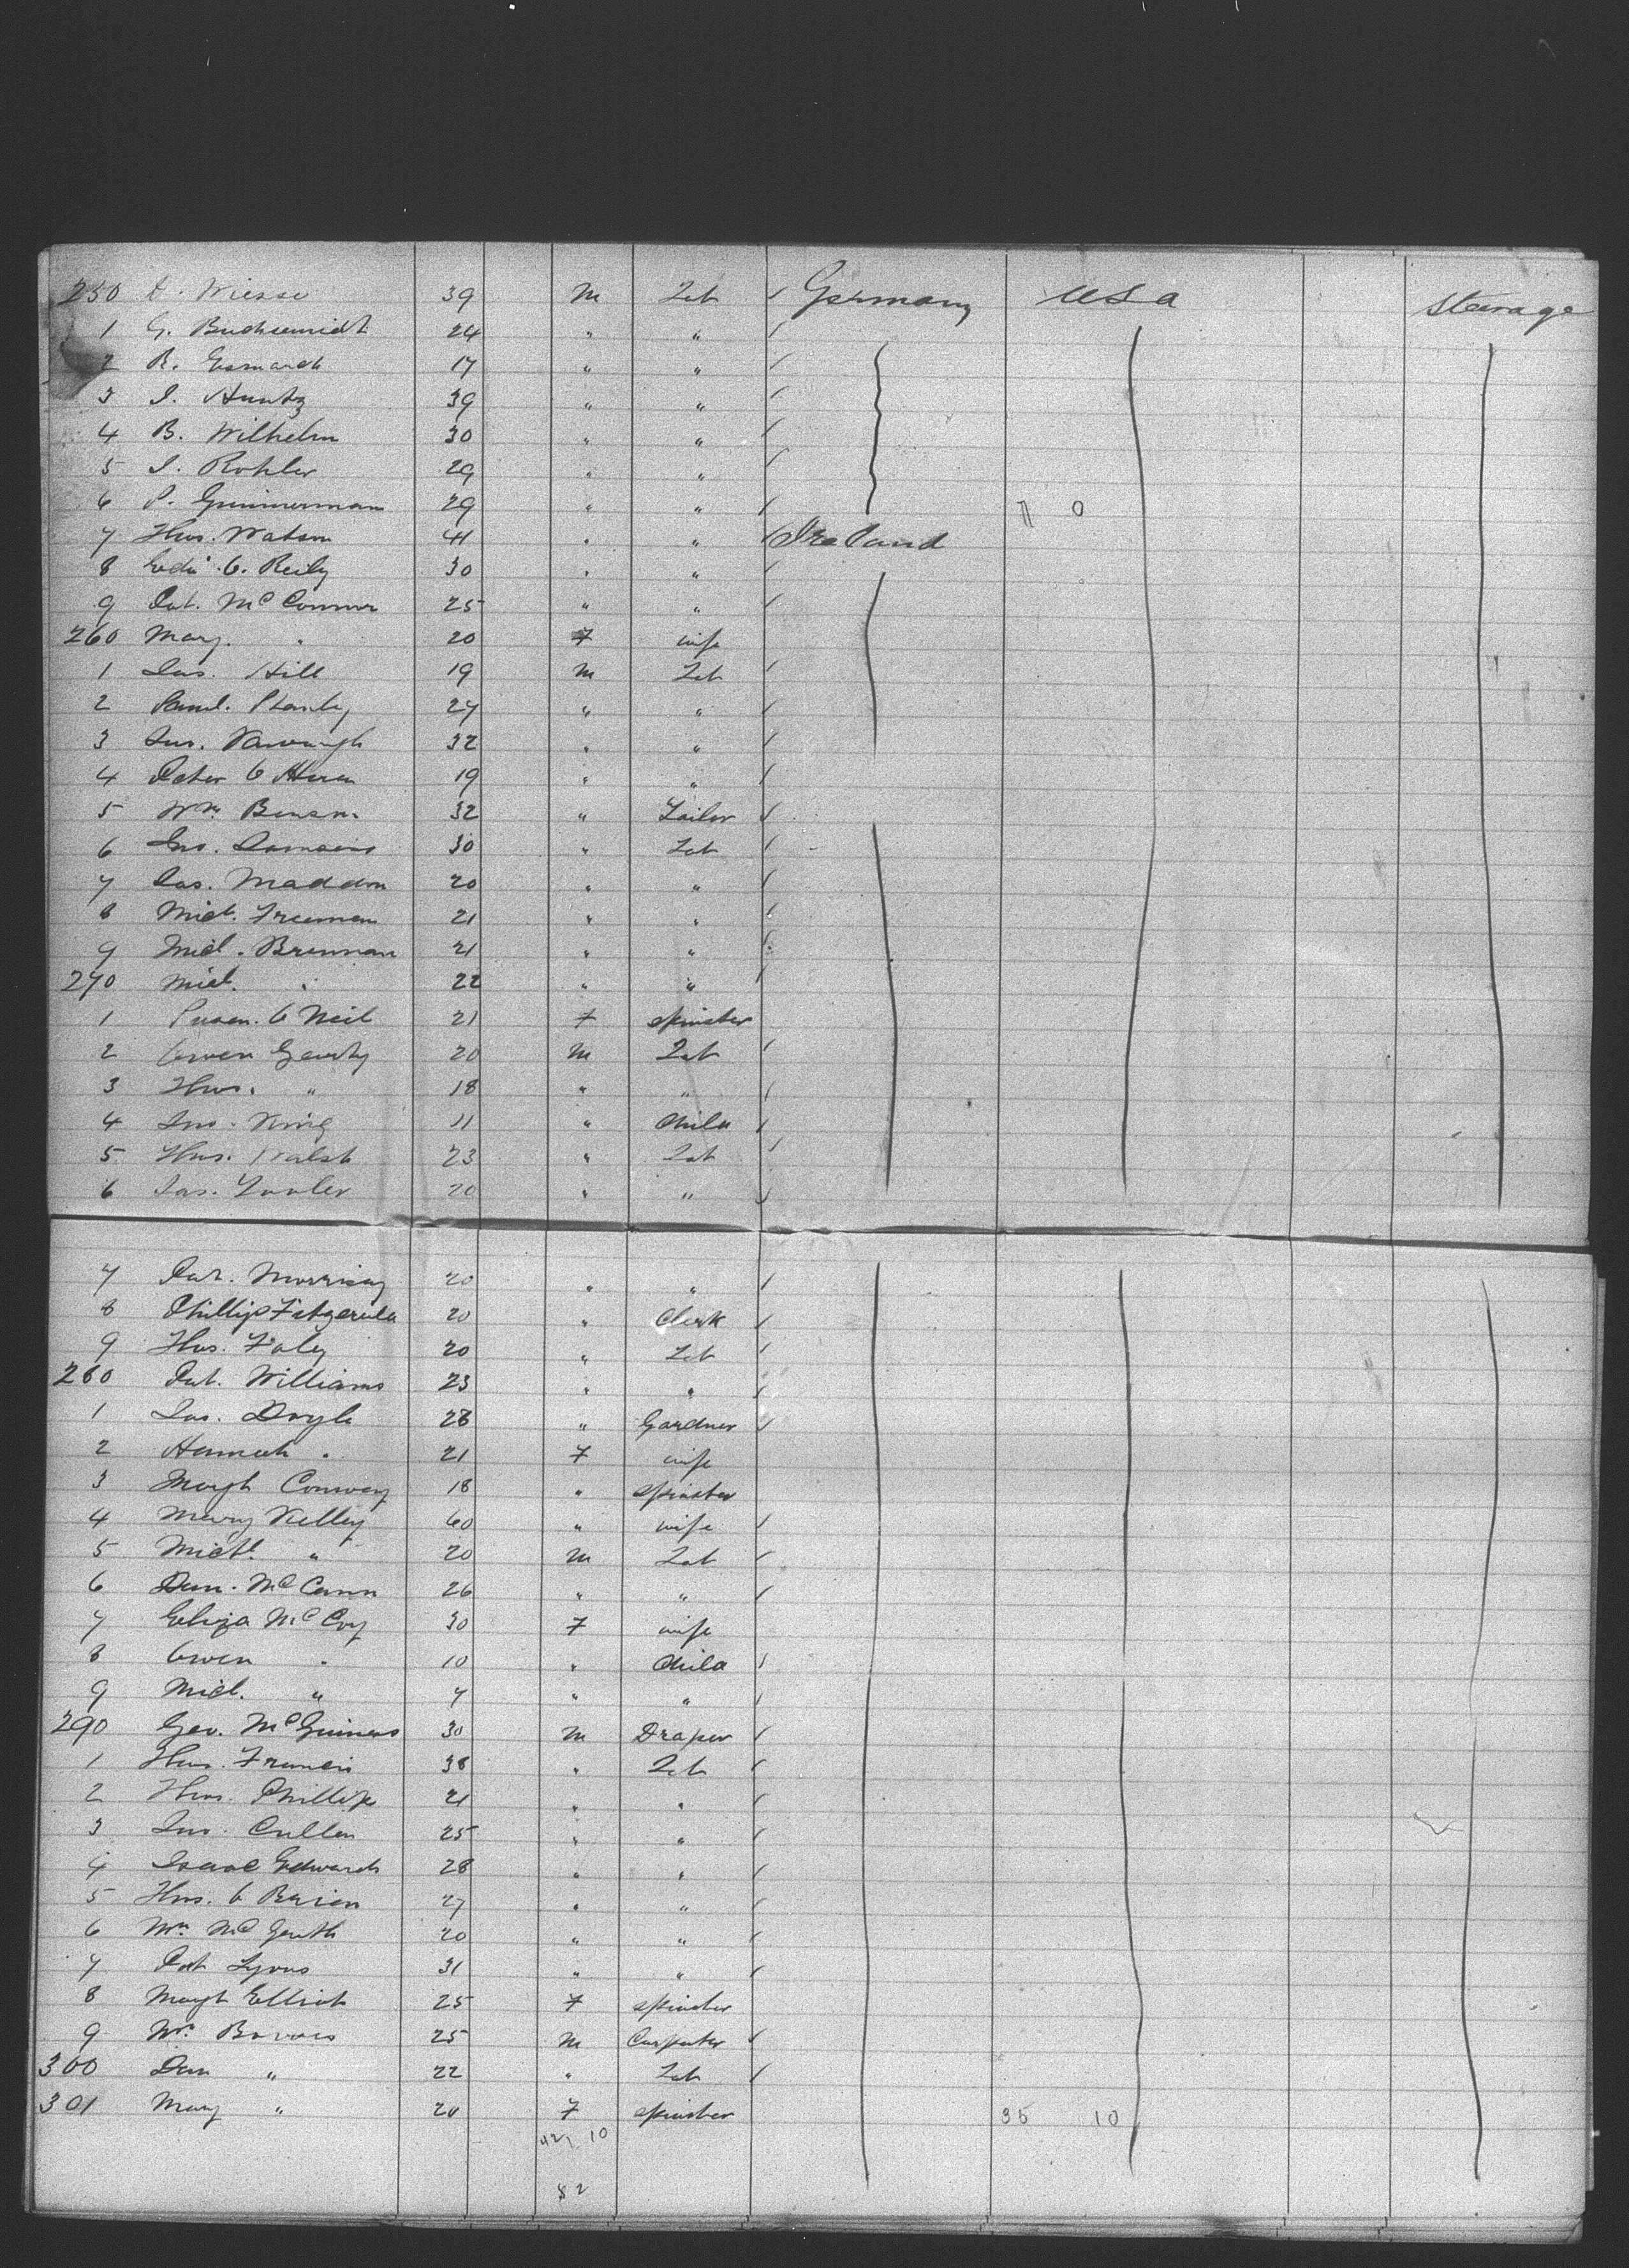 250 D. Wiesse 39 M Lab / Germany USA Steerage
1 G. Buchsmidt 24 " " /
2 R. Esmarch 17 " " /
3 I. Huntz 39 " " /
4 B. Wilhelm 30 " " /
5 I. Kohler 29 " " /
6 P. Gunnerman 29 " " / 7 0
7 Thos. Watson 41 " " / Ireland
8 Edw. O. Reily 30 " " /
9 Pat. McConnor 25 " " /
260 Mary. " 20 F wife
1 Jas. Hill 19 M Lab /
2 Saml. Stanley 27 " " /
3 Jno. Kavanagh 32 " " /
4 Peter O Hara 19 " " /
5 Wm. Benson. 32 " Tailor /
6 Jno. 30 " Lab /
7 Jas. Madden 20 " " /
8 Micl. Freeman 21 " " /
9 Micl. Brennan 21 " " /
270 Micl. " 22 " " /
1 Susan. O Neil 21 F spinster
2 Owen Geraty 20 M Lab /
3 Thos. " 18 " " /
4 Jno. King 11 " Child /
5 Thos. Walsh 23 " Lab /
6 Jas. Lawler 20 " " /
7 Pat. Morrisey 20 " " /
8 Phillip Fitzgerald 20 " Clerk /
9 Thos. Foley 20 " Lab /
280 Pat. Williams 23 " " /
1 Jas. Doyle 28 " Gardner /
2 Hannah " 21 F wife
3 Margt Conway 18 " spinster
4 Mary Kelley 60 " wife /
5 Michl. " 20 M Lab /
6 Dan. McCann 26 " " /
7 Eliza McCoy 30 F wife
8 Owen " 10 " Child /
9 Micl. " 7 " " /
290 Geo. McGuiness 30 M Draper /
1 Thos. Francis 38 " Lab /
2 Thos. Phillips 21 " " /
3 Jno. Cullen 25 " " /
4 Isaac Edwards 28 " " /
5 Thos. O Brien 27 " " /
6 Wm. Mc 20 " " /
7 Pat Lyons 31 " " /
8 Margt Elliot 25 F spinster
9 Wm. 25 M Carpenter /
300 Dan " 22 " Lab /
301 Mary " 20 F spinster 35 10
42 10
52